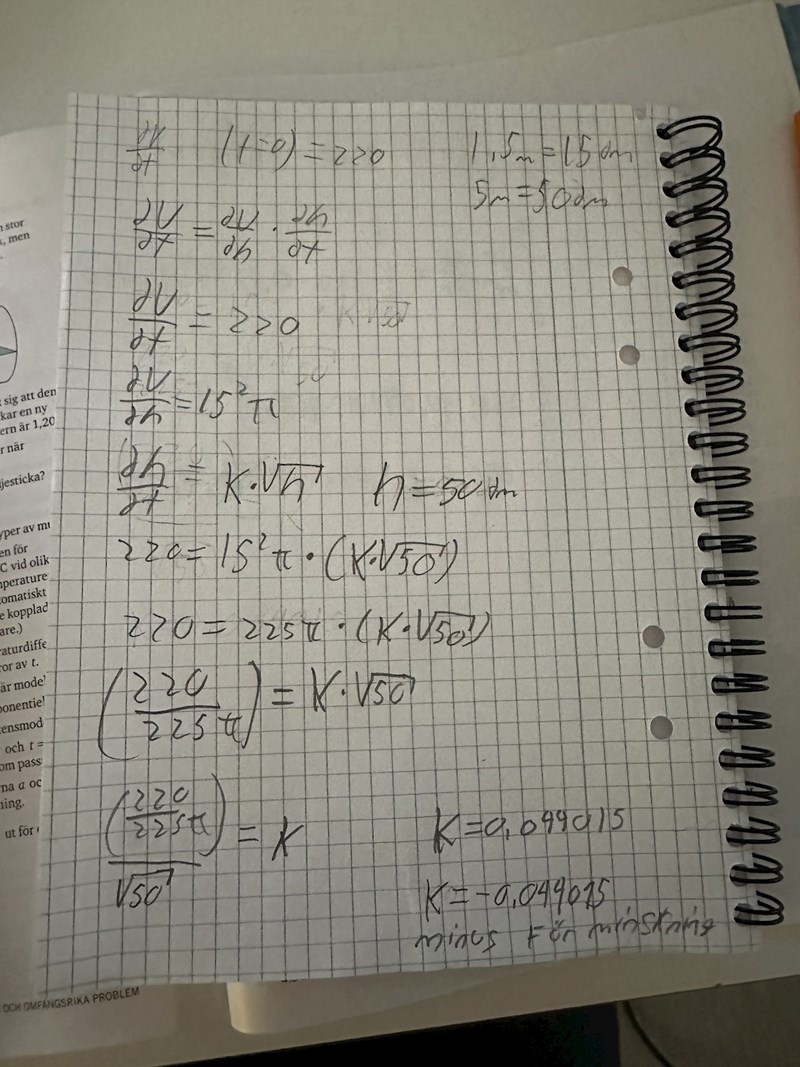 stor
, men
sig att den
kar en ny
ern är 1,20
r när
jesticka?
yper av
en för
C vid olik
mperature
omatiskt
e kopplad
are.)
raturdiffe
ror av t.
är mode
ponentie
tensmod
och t =
om pass
na a oc
ning.
ut för
OCH OMFÅNGSRIKA PROBLEM
dV/dt (t=0) = 220 1,5m = 15dm
5m = 50dm
dV/dt = dV/dh · dh/dt
dV/dt = 220
dV/dh = 15²π
dh/dt = K·√h h = 50 dm
220 = 15²π · (K·√50)
220 = 225π · (K·√50)
(220/225π) = K·√50
(220/225π)/√50 = K K = 0,044015
K = -0,044015